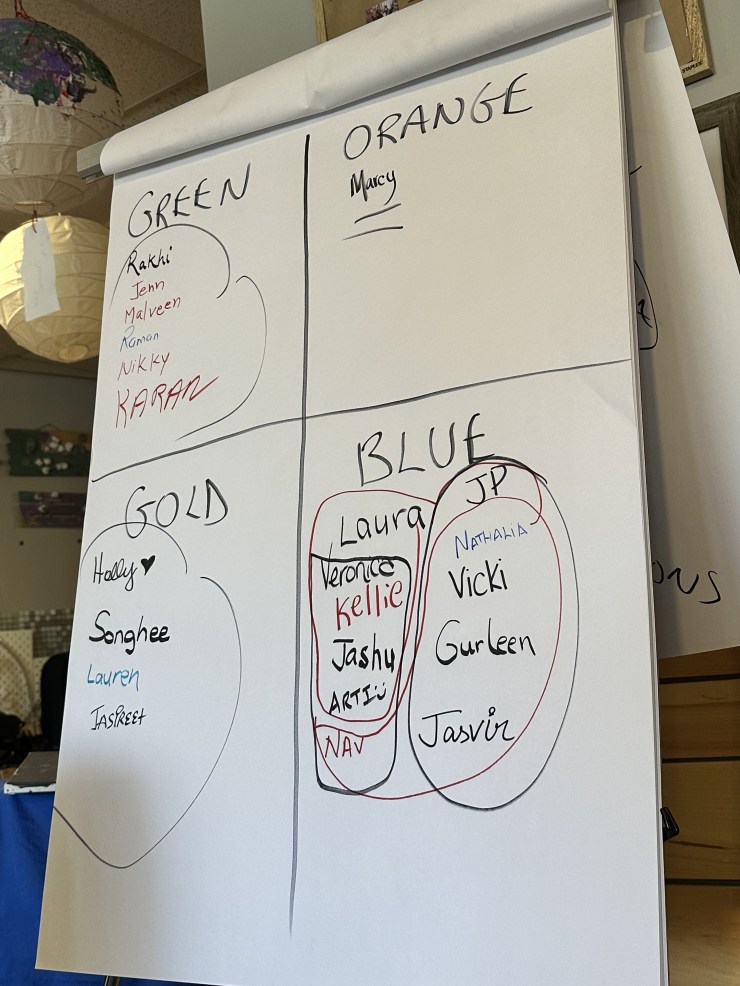 GREEN
Rakhi
Jenn
Malveen
Raman
Nikky
KARAN
ORANGE
Marcy
GOLD
Holly ♥
Songhee
Lauren
JASPREET
BLUE
Laura
Veronica
Kellie
Jashu
ARTI
NAV
JP
NATHALIA
Vicki
Gurleen
Jasvir
ONS
STAPLES